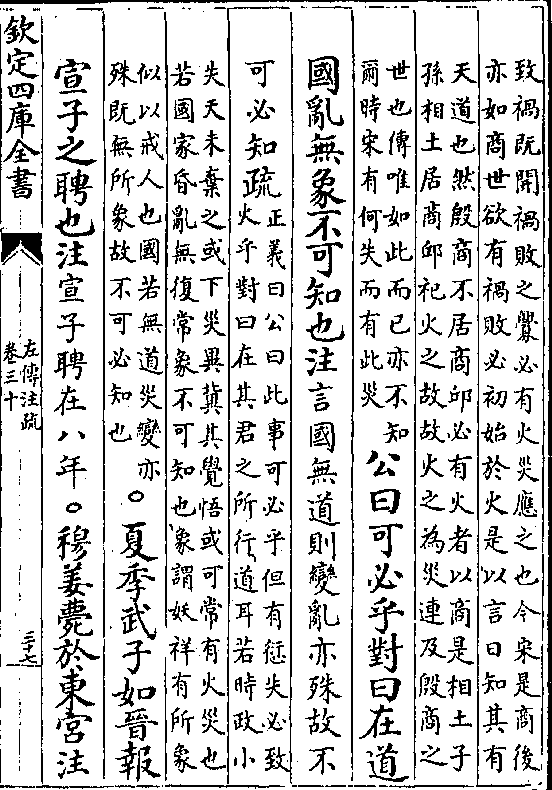 致禍既開禍敗之釁必有火災應之也今宋是商後
亦如商世欲有禍敗必初始於火是以言日知其有
天道也然殷商不居商邱必有火者以商是相土子
孫相土居商邱祀火之故故火之為災連及殷商之
世也傳唯如此而已亦不知
爾時宋有何失而有此災
公曰可必乎對曰在道
國亂無象不可知也注言國無道則變亂亦殊故不
可必知疏
正義曰公曰此事可必乎但有愆失必致
火乎對曰在其君之所行道耳若時政小
失天未棄之或下災異冀其覺悟或可常有火災也
若國家昏亂無復常象不可知也象謂妖祥有所象
似以戒人也國若無道災變亦
殊既無所象故不可必知也
○夏季武子如晉報
宣子之聘也注宣子聘在八年○穆姜薨於東宮注
欽定四庫全書
左傳注疏
卷三十
三十七